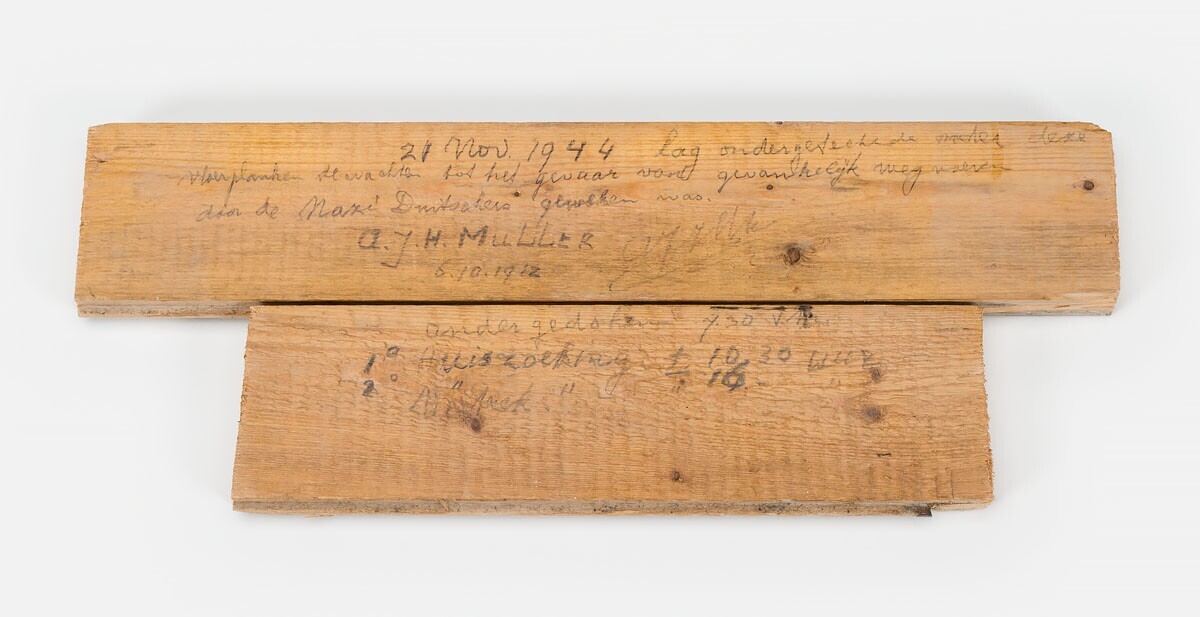 21 Nov. 1944 lag ondergetekende onder deze
vloerplanken te wachten tot het gevaar van gevankelijk wegvoeren
door de Nazi Duitschers geweken was.
A.J.H. MULLER
6.10.1912
ondergedoken 7.30 V.M.
1° Huiszoeking ± 10.30 uur
2° " " 16. "